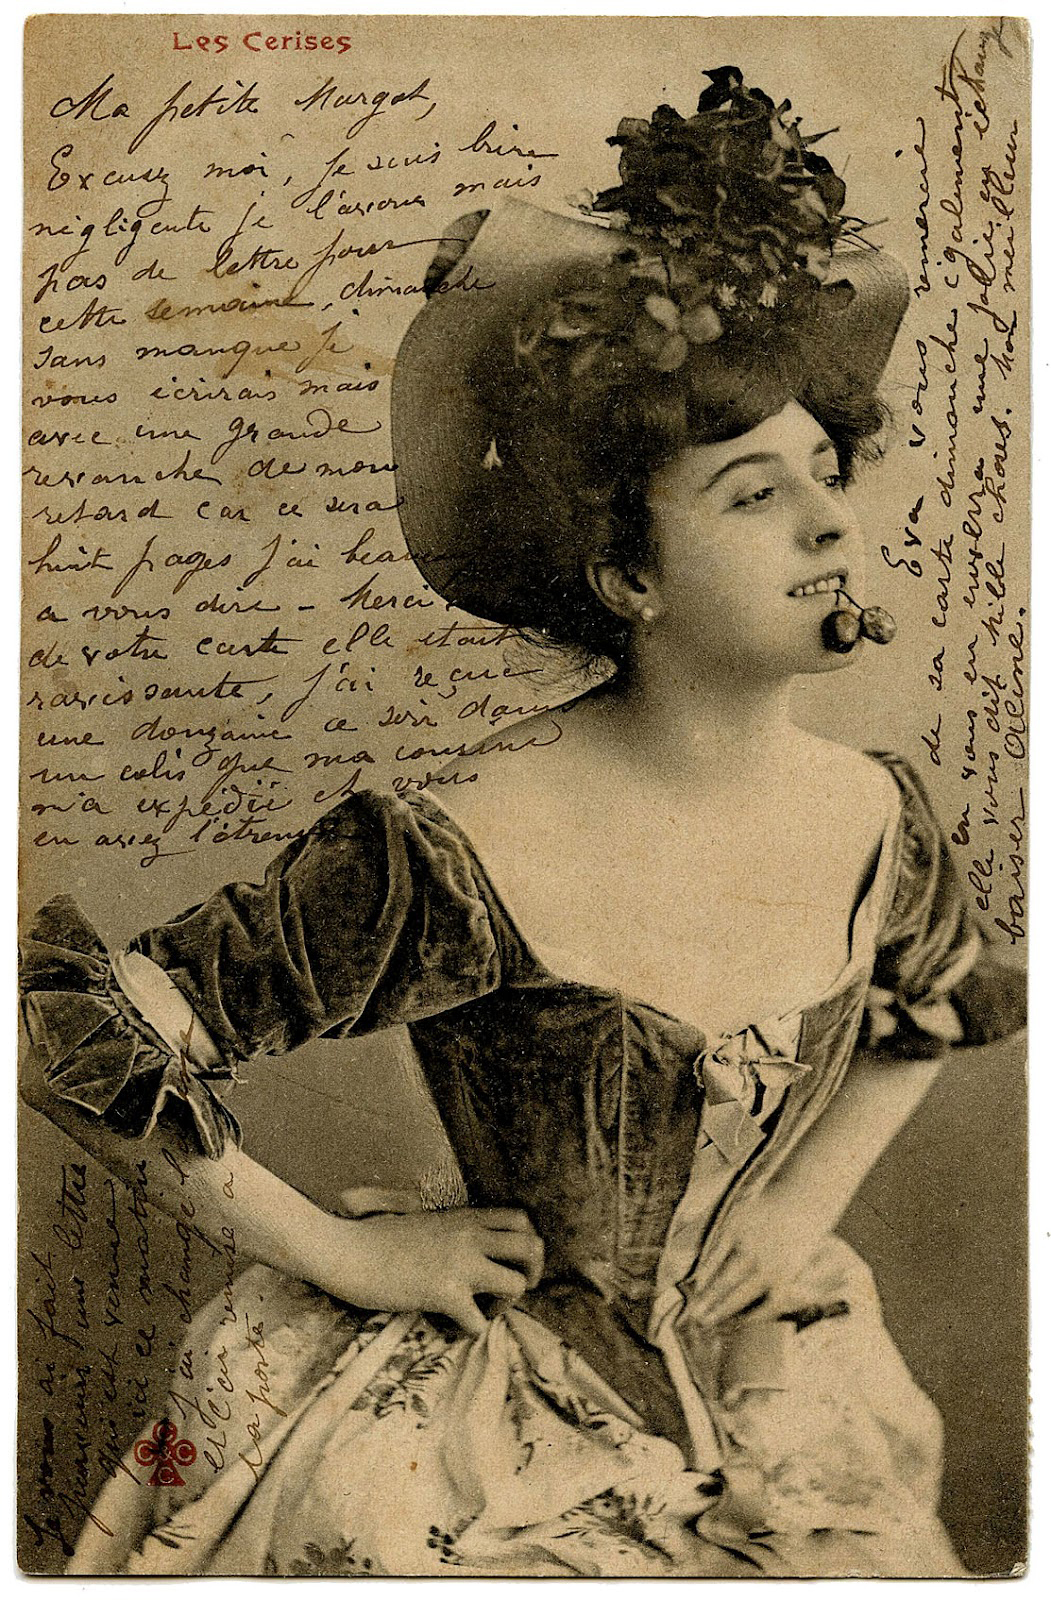 Les Cerises
Ma petite Margot,
Excusez moi, je suis bien
négligente je l'avoue mais
pas de lettre pour
cette semaine, dimanche
sans manque je
vous écrirais mais
avec une grande
revanche de mon
retard car ce sera
huit pages j'ai beaucoup
a vous dire - Merci
de votre carte elle était
ravissante, j'ai reçue
une douzaine ce soir dans
un colis que ma cousine
m'a expédié et vous
en avez l'étrenne
Eva vous remercie
de sa carte dimanche également
en vous en enverra une jolie en échange
elle vous dit mille choses. Mon meilleur
baiser
Je vous ai fait
plusieurs une lettre
qui est venue
ici ce matin
j'ai changé
et l'ai remise a
la poste.
C C C